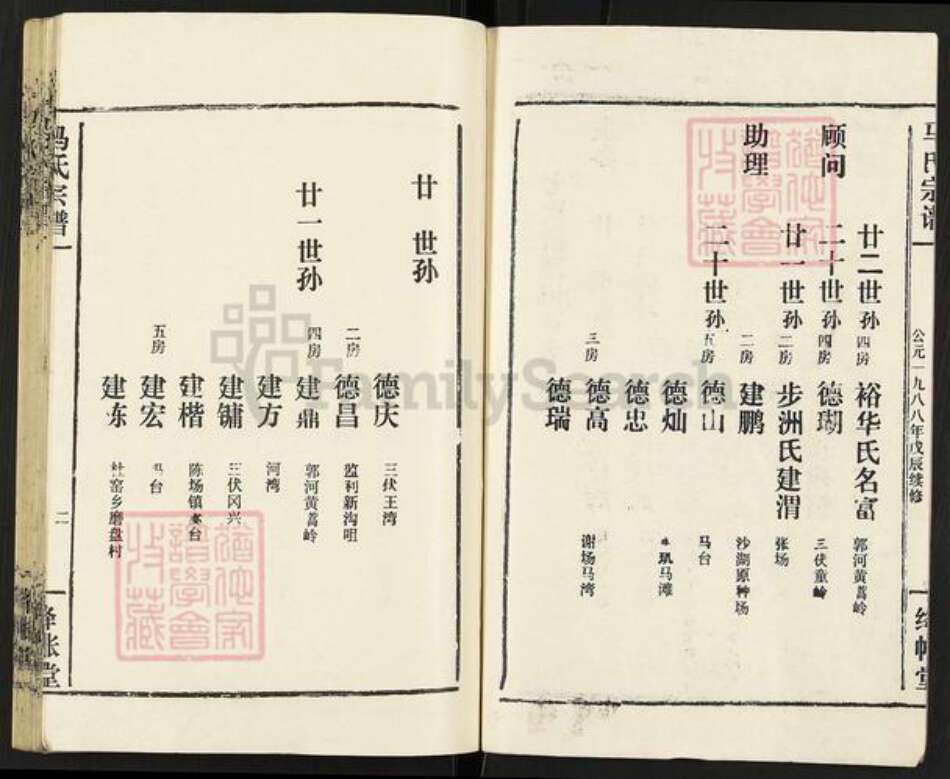 马氏宗谱
公元一九八八年戊辰续修
绛帐堂
廿二世孙 四房 裕华氏名富 郭河黄蒿岭
顾问
二十世孙 四房 德瑚 三伏童岭
廿一世孙 二房 步洲氏建渭 张场
助理
二房 建鹏 沙湖原种场
二十世孙 五房 德山 马台
德灿 马滩
德忠
三房 德高 谢场马湾
德瑞
廿 世孙
德庆 三伏王湾
二房 德昌 监利新沟咀
廿一世孙 四房 建鼎 郭河黄蒿岭
建方 河湾
建镛 三伏冈兴
建楷 陈场镇 台
五房 建宏 马台
建冻 窑乡磨盘村
马氏宗谱
二
绛帐堂
FamilySearch